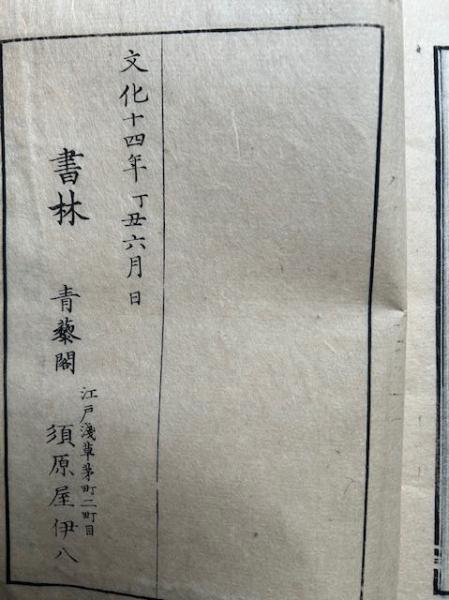 文化十四年丁丑六月日
書林 青藜閣
江戸淺草茅町二町目
須原屋伊八